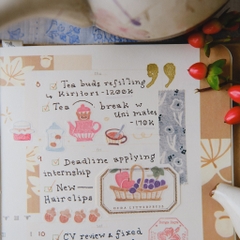 8 Tea buds refilling
↳ Kiritori - 1200k
Tea break w
Uni mates
- 170k
9 Deadline applying
internship
New
Hair clips
10 CV review & fixed